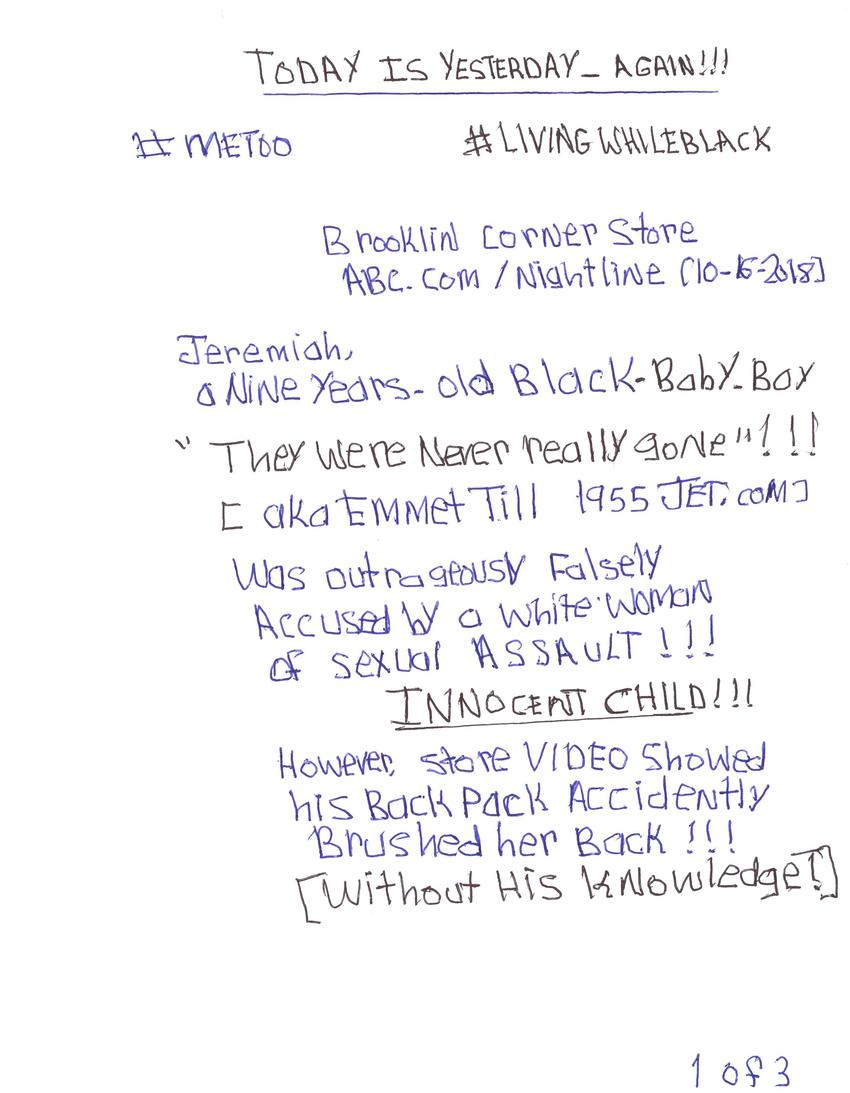 TODAY IS YESTERDAY_ AGAIN!!!
#METOO #LIVINGWHILEBLACK
Brooklin Corner Store
ABC.Com/Nightline [10-16-2018]
Jeremiah,
a Nine Years-old Black-Baby-Boy
"They Were Never really gone"!!!
[aka Emmet Till 1955 JET.COM]
Was outrageously Falsely
Accused by a White-Woman
of sexual ASSAULT!!!
INNOCENT CHILD!!!
However, store VIDEO Showed
his BackPack Accidently
Brushed her Back!!!
[Without His Knowledge!]
1 of 3